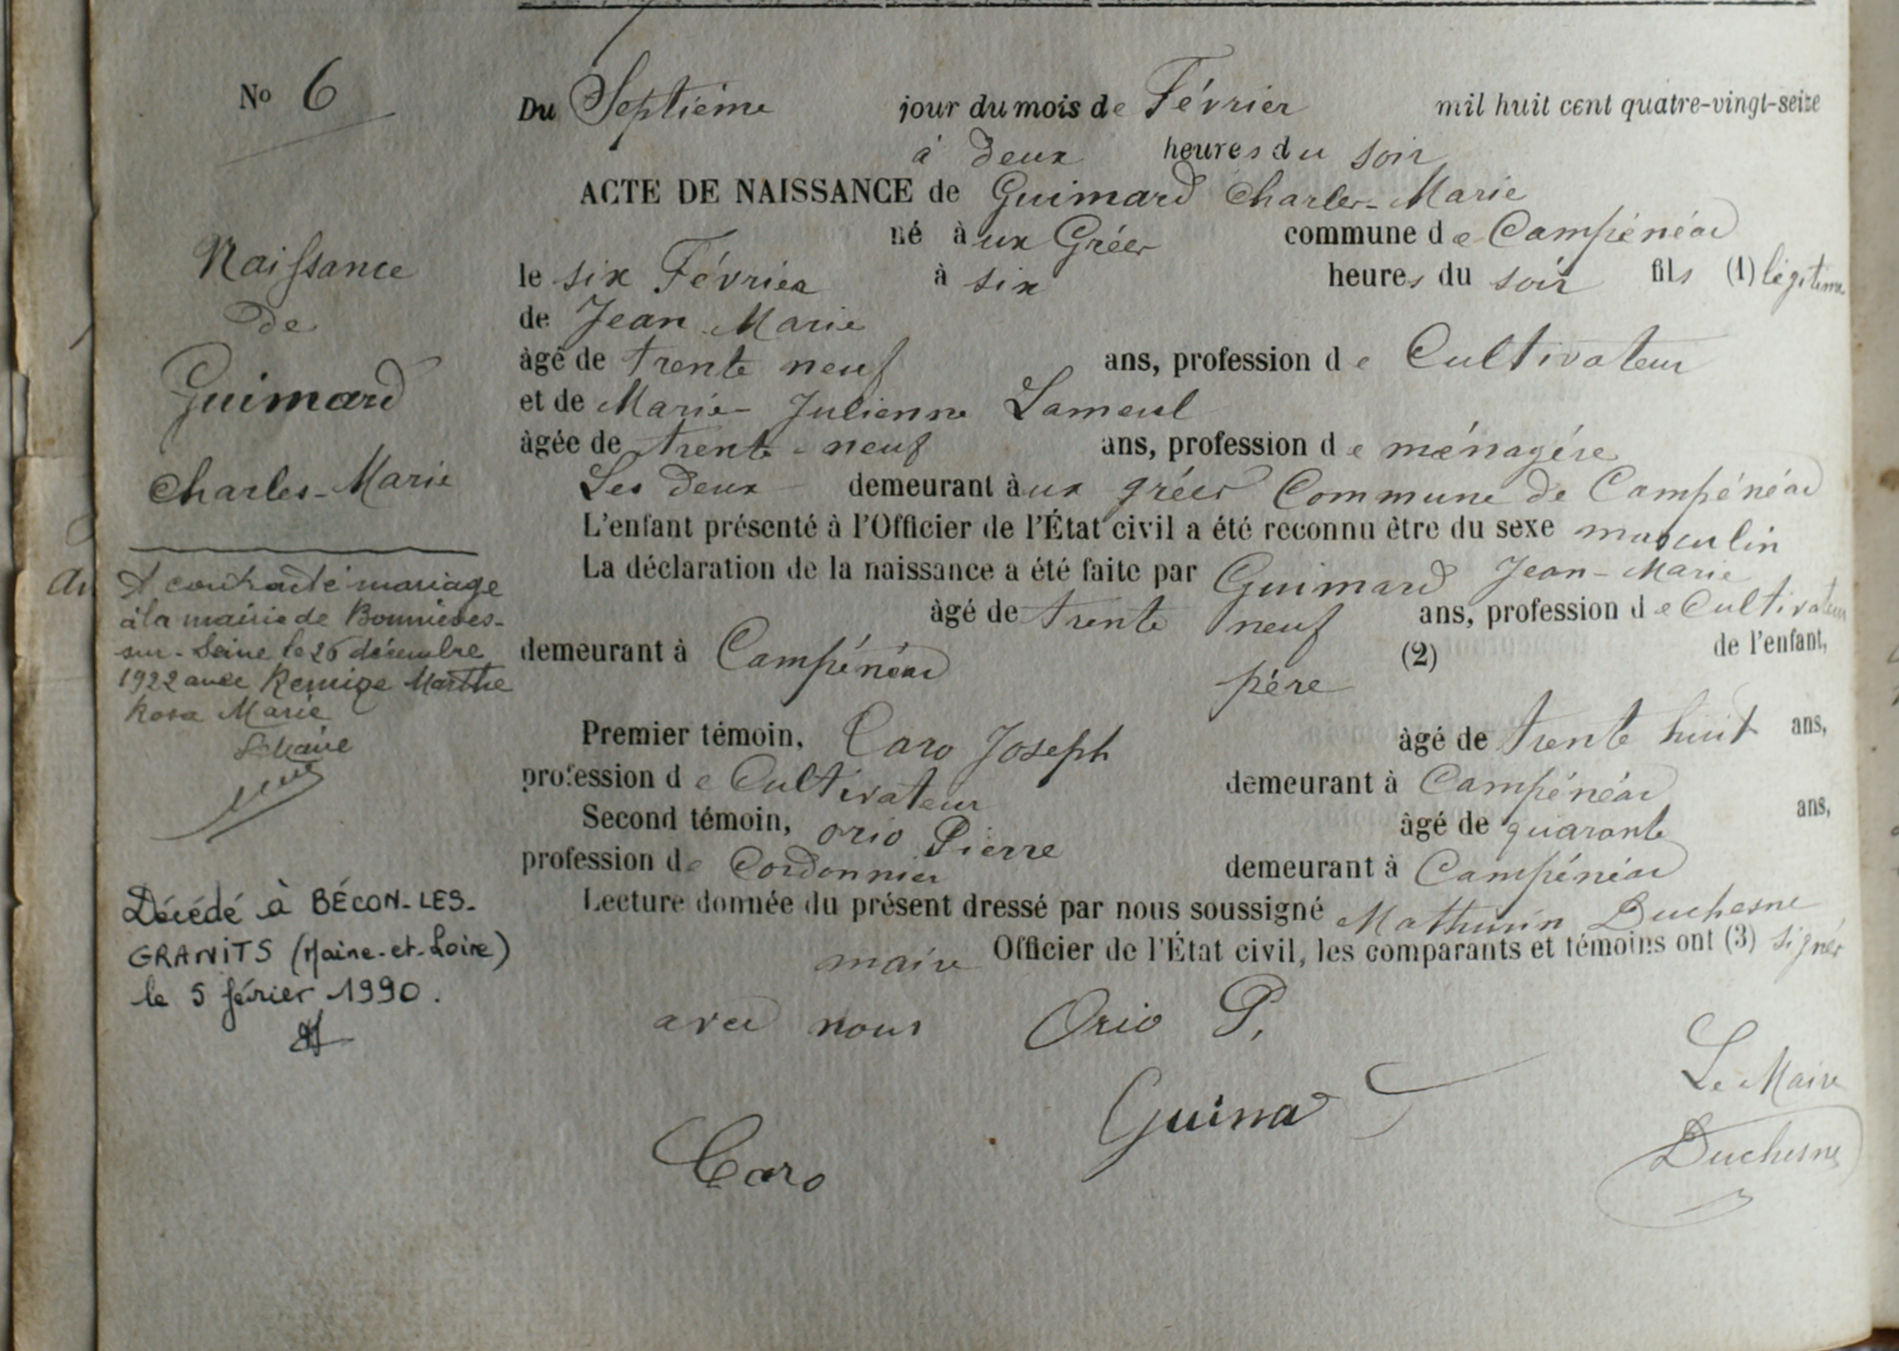 No 6
Naissance
de
Guimard
Charles-Marie
A contracté mariage
à la mairie de Bonnières-
sur-Seine le 26 décembre
1922 avec Remige Marthe
Rosa Marie
Le Maire
Décédé à BÉCON-LES-
GRANITS (Maine-et-Loire)
le 5 février 1990.
Du Septième jour du mois de Février mil huit cent quatre-vingt-seize
à deux heures du soir
ACTE DE NAISSANCE de Guimard Charles-Marie
né à ux Grées commune de Campénéac
le six Février à six heures du soir fils (1) légitime
de Jean Marie
âgé de trente neuf ans, profession de Cultivateur
et de Marie-Julienne Lameul
âgée de trente-neuf ans, profession de ménagère
Les deux demeurant à ux grées Commune de Campénéac
L'enfant présenté à l'Officier de l'État civil a été reconnu être du sexe masculin
La déclaration de la naissance a été faite par Guimard Jean-Marie
âgé de trente neuf ans, profession de Cultivateur
demeurant à Campénéac (2) père de l'enfant,
Premier témoin, Caro Joseph âgé de trente huit ans,
profession de Cultivateur demeurant à Campénéac
Second témoin, Orio Pierre âgé de quarante ans,
profession de Cordonnier demeurant à Campénéac
Lecture donnée du présent dressé par nous soussigné Mathurin Duchesne
maire Officier de l'État civil, les comparants et témoins ont (3) signés
avec nous Orio P.
Le Maire
Guima
Caro
Duchesne